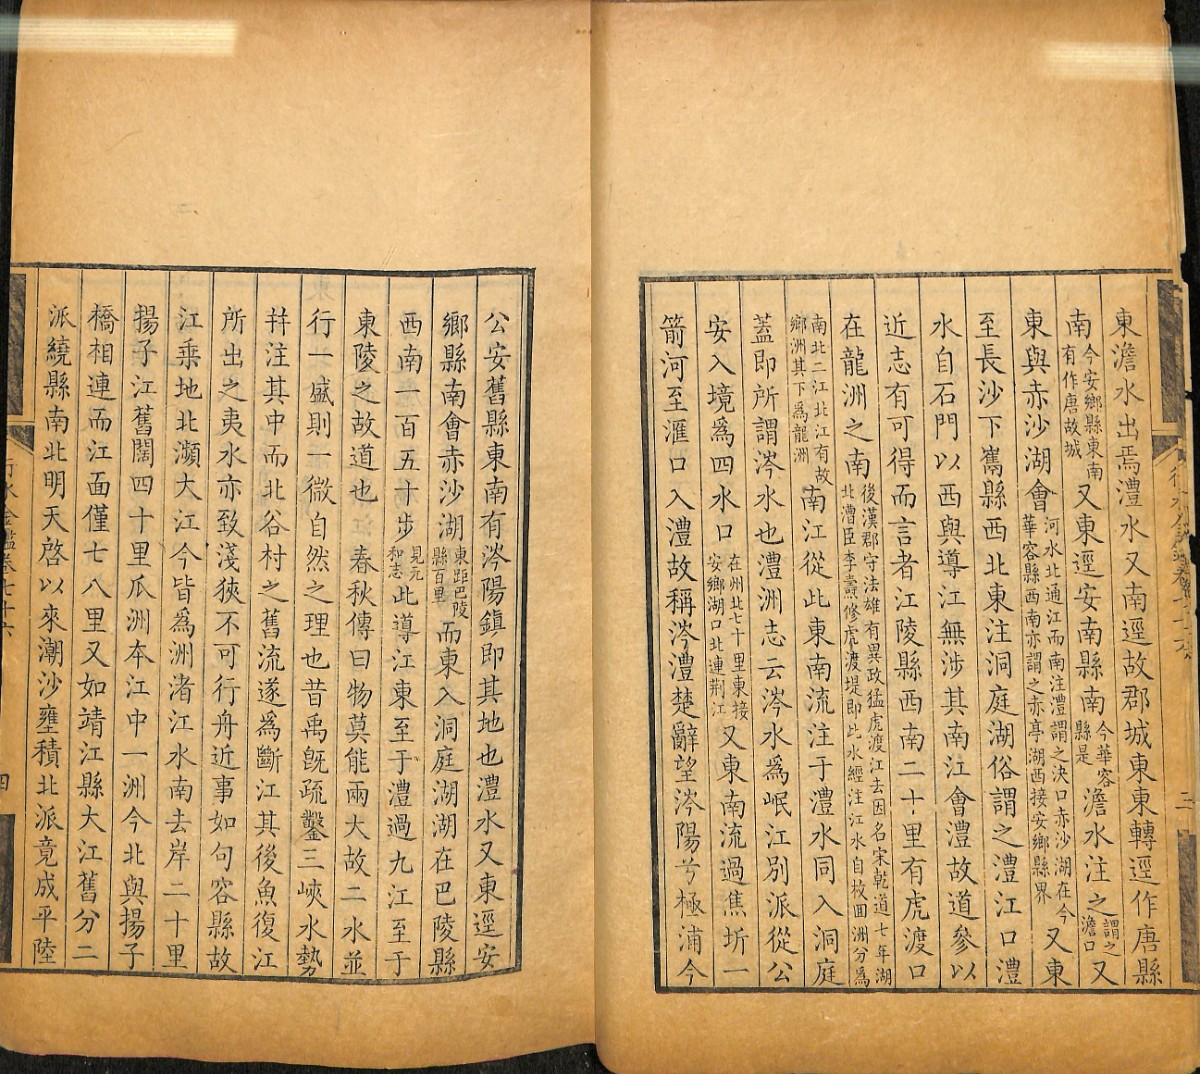 東澹水出焉澧水又南逕故郡城東東轉逕作唐縣
南今安鄉縣東南有作唐故城又東逕安南縣南今華容縣是澹水注之謂之澹口又
東與赤沙湖會河水北通江而南注澧謂之決口赤沙湖在今華容縣西南亦謂之赤亭湖西接安鄉縣界又東
至長沙下雋縣西北東注洞庭湖俗謂之澧江口澧
水自石門以西與導江無涉其南江會澧故道參以
近志有可得而言者江陵縣西南二十里有虎渡口
在龍洲之南後漢郡守法雄有異政猛虎渡江去因名宋乾道七年湖北漕臣李燾修虎渡堤即此水經注江水自枚回洲分爲
南北二江北江有故鄉洲其下爲龍洲南江從此東南流注于澧水同入洞庭
蓋即所謂涔水也澧洲志云涔水爲岷江別派從公
安入境爲四水口在州北七十里東接安鄉湖口北連荆江又東南流過焦圻一
箭河至滙口入澧故稱涔澧楚辭望涔陽兮極浦今
公安舊縣東南有涔陽鎮即其地也澧水又東逕安
鄉縣南會赤沙湖東距巴陵縣百里而東入洞庭湖湖在巴陵縣
西南一百五十步見元和志此導江東至于澧過九江至于
東陵之故道也春秋傳曰物莫能兩大故二水並
行一盛則一微自然之理也昔禹旣疏鑿三峽水勢
幷注其中而北谷村之舊流遂爲斷江其後魚復江
所出之夷水亦致淺狹不可行舟近事如句容縣故
江乘地北瀕大江今皆爲洲渚江水南去岸二十里
揚子江舊闊四十里瓜洲本江中一洲今北與揚子
橋相連而江面僅七八里又如靖江縣大江舊分二
派繞縣南北明天啓以來潮沙壅積北派竟成平陸
行水金鑑卷七十六
四